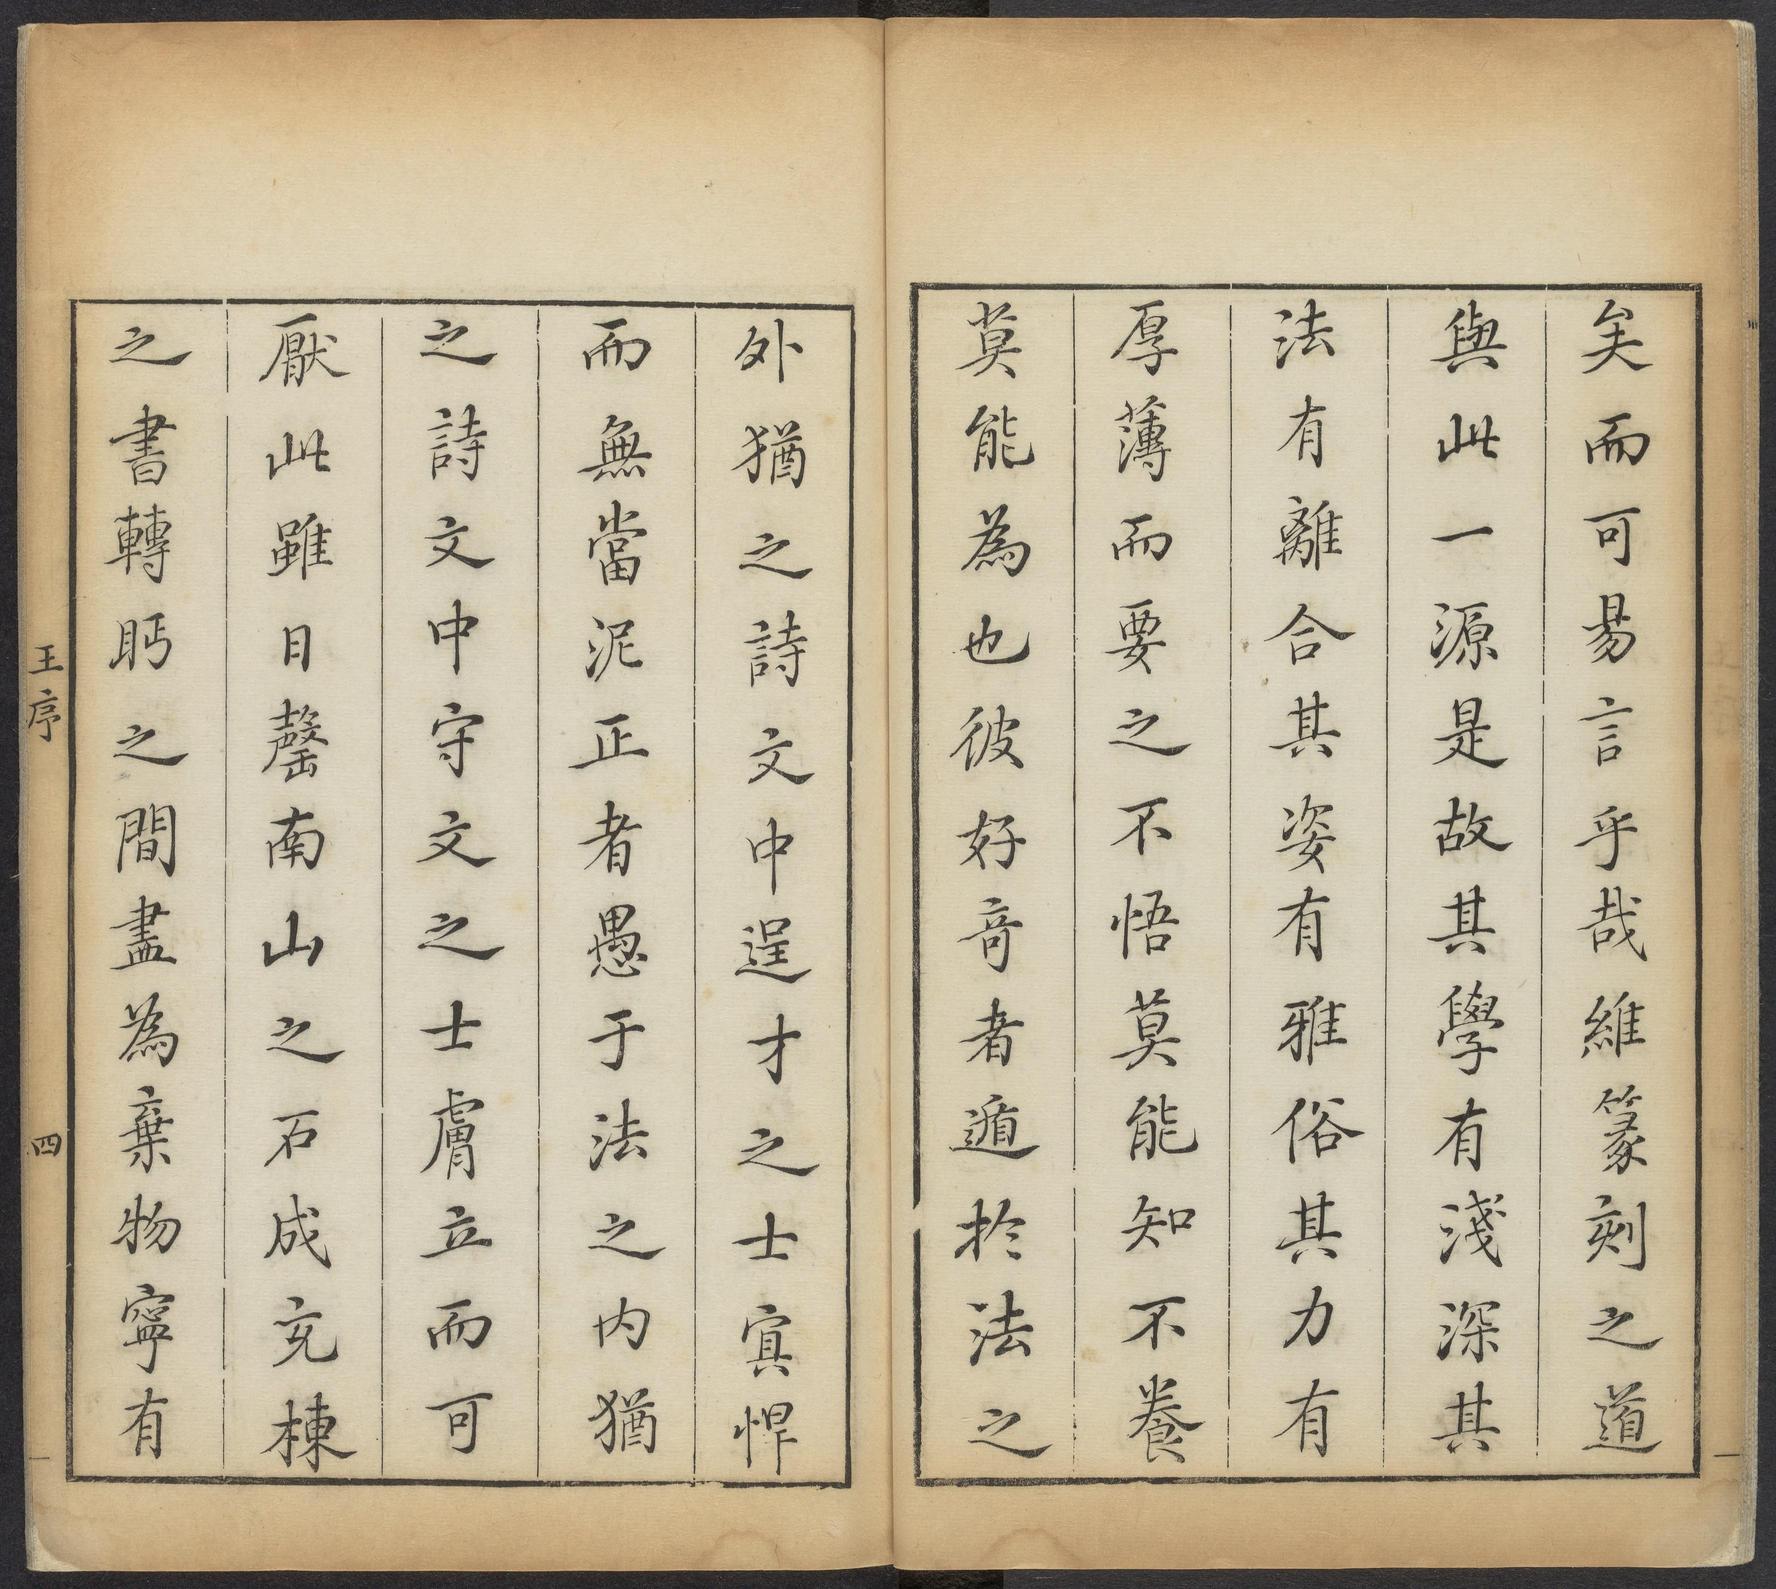 矣而可易言乎哉維篆刻之道
與此一源是故其學有淺深其
法有離合其姿有雅俗其力有
厚薄而要之不悟莫能知不養
莫能為也彼好奇者遁於法之
外猶之詩文中逞才之士寘悍
而無當泥正者愚于法之内猶
之詩文中守文之士膚立而可
厭此雖日罄南山之石成充棟
之書轉眄之間盡為棄物寧有
王序
四